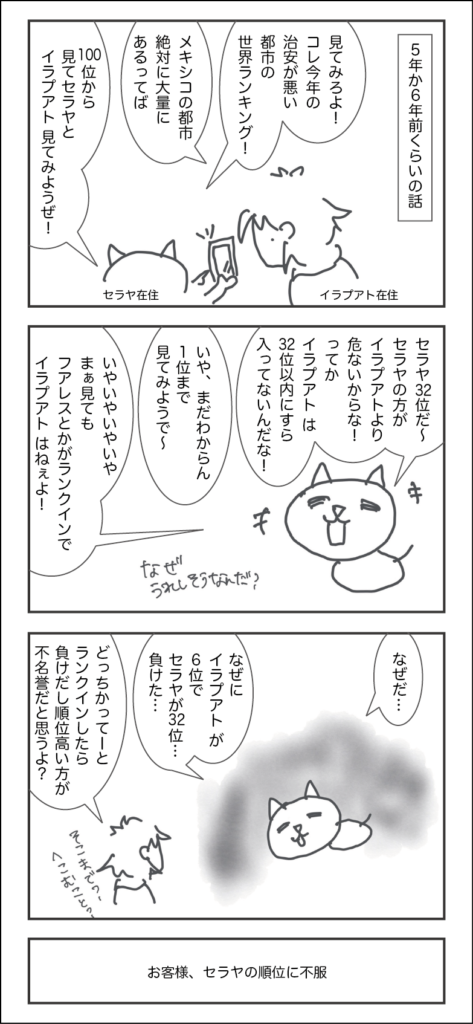 5年か6年前くらいの話
見てみろよ！
コレ今年の
治安が悪い
都市の
世界ランキング！
メキシコの都市
絶対に大量に
あるってば
100位から
見てセラヤと
イラプアト 見てみようぜ！
セラヤ在住
イラプアト在住
セラヤ32位だ〜
セラヤの方が
イラプアトより
危ないからな！
ってか
イラプアト は
32位以内にすら
入ってないんだな！
いや、まだわからん
1位まで
見てみようで〜
いやいやいやいや
まぁ見ても
ファレスとかがランクインで
イラプアト はねぇよ！
なぜ
うれしそうなんだ？
なぜだ…
なぜに
イラプアト が
6位で
セラヤが32位…
負けた…
どっちかってーと
ランクインしたら
負けだし順位高い方が
不名誉だと思うよ？
そこまでっ
へこむことっ
お客様、セラヤの順位に不服